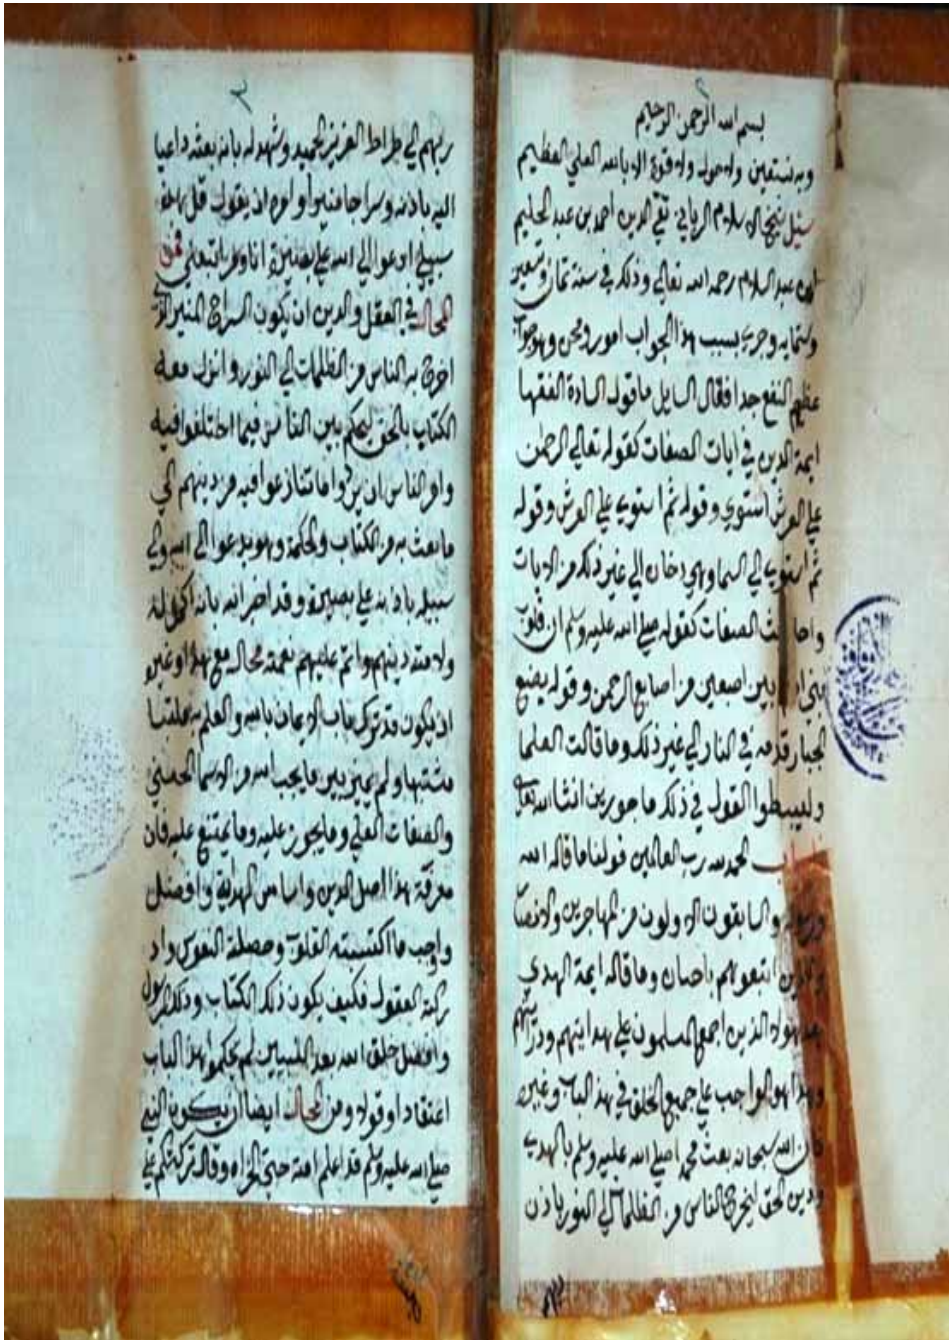 بسم الله الرحمن الرحيم
وبه نستعين ولا حول ولا قوة الا بالله العلي العظيم
سئل شيخ الاسلام الرباني تقي الدين احمد بن عبد الحليم
ابن عبد السلام رحمه الله تعالى وذلك في سنة ثمان وتسعين
وستمايه وجرى بسبب هذا الجواب امور ومحن وهو جواب
عظيم النفع جدا فقال السايل ما قول السادة الفقها
ايمة الدين في ايات الصفات كقوله تعالى الرحمن
على العرش استوى وقوله ثم استوى على العرش وقوله
ثم استوى الى السما وهي دخان الى غير ذلك من الايات
واحاديث الصفات كقوله صلى الله عليه وسلم ان قلوب
بني ادم بين اصبعين من اصابع الرحمن وقوله يضع
الجبار قدمه في النار الى غير ذلك وما قالت العلما
وليبسطوا القول في ذلك ماجورين انشا الله تعالى
الحمد لله رب العالمين قولنا ما قاله الله
ورسوله والسابقون الاولون من المهاجرين والانصار
والذين اتبعوهم باحسان وما قاله ايمة الهدى
بعد هولاء الذين اجمع المسلمون على هدايتهم ودرايتهم
وهذا هو الواجب على جميع الخلق في هذا الباب وغيره
فان الله سبحانه بعث محمدا صلى الله عليه وسلم بالهدى
ودين الحق ليخرج الناس من الظلمات الى النور باذن
٣
ربهم الى صراط العزيز الحميد وشهد له بانه بعثه داعيا
اليه باذنه وسراجا منيرا وامره ان يقول قل هذه
سبيلي ادعوا الى الله على بصيرة انا ومن اتبعني فمن
المحال في العقل والدين ان يكون السراج المنير الذي
اخرج به الناس من الظلمات الى النور وانزل معه
الكتاب بالحق ليحكم بين الناس فيما اختلفوا فيه
وامر الناس ان يردوا ما تنازعوا فيه من دينهم الى
ما بعث به من الكتاب والحكمة وهو يدعوا الى الله والى
سبيله باذنه على بصيرة وقد اخبر الله بانه اكمل له
ولامته دينهم واتم عليهم نعمته محال مع هذا وغيره
ان يكون قد ترك باب الايمان بالله والعلم به ملتبسا
مشتبها ولم يميز بين ما يجب لله من الاسما الحسنى
والصفات العلى وما يجوز عليه وما يمتنع عليه فان
معرفة هذا اصل الدين واساس الهداية وافضل
واجب ما اكتسبته القلوب وحصلته النفوس واد
ركته العقول فكيف يكون ذلك الكتاب وذلك الرسول
وافضل خلق الله بعد النبيين لم يحكموا هذا الباب
اعتقادا وقولا ومن المحال ايضا ان يكون النبي
صلى الله عليه وسلم قد اعلم امته حتى الخراه وقال تركتكم على